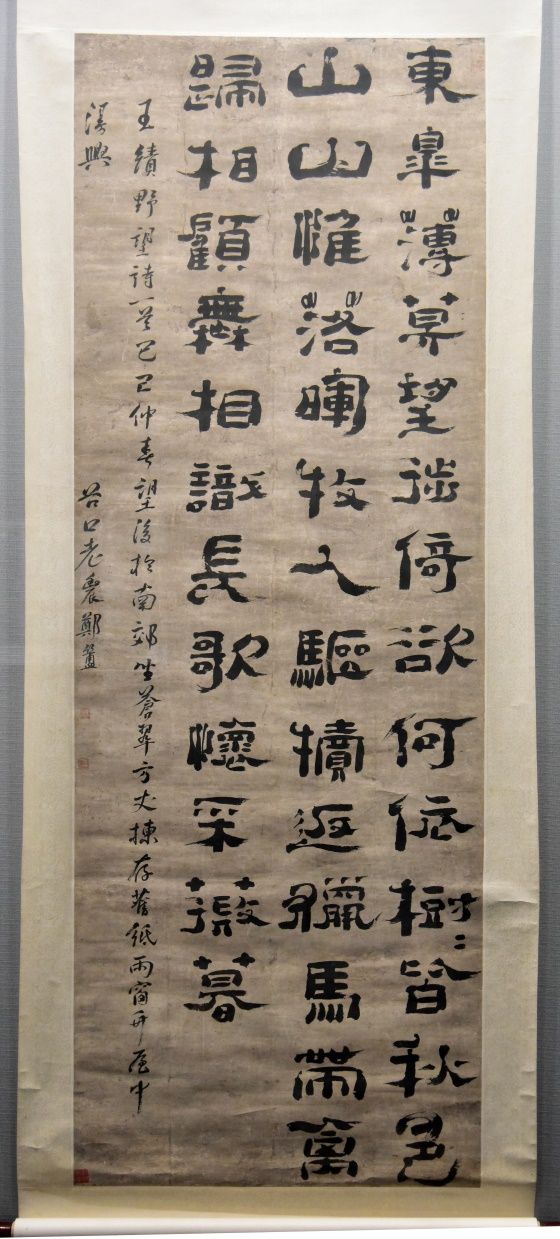 東皋薄莫望徙倚欲何依樹二皆秋色
山山惟落暉牧人驅犢返獵馬帶禽
歸相顧無相識長歌懷采薇暮
王績野望詩一首己巳仲春望後於南郊坐蒼翠方丈揀存舊紙雨窗中
漫興
谷口老農鄭簠